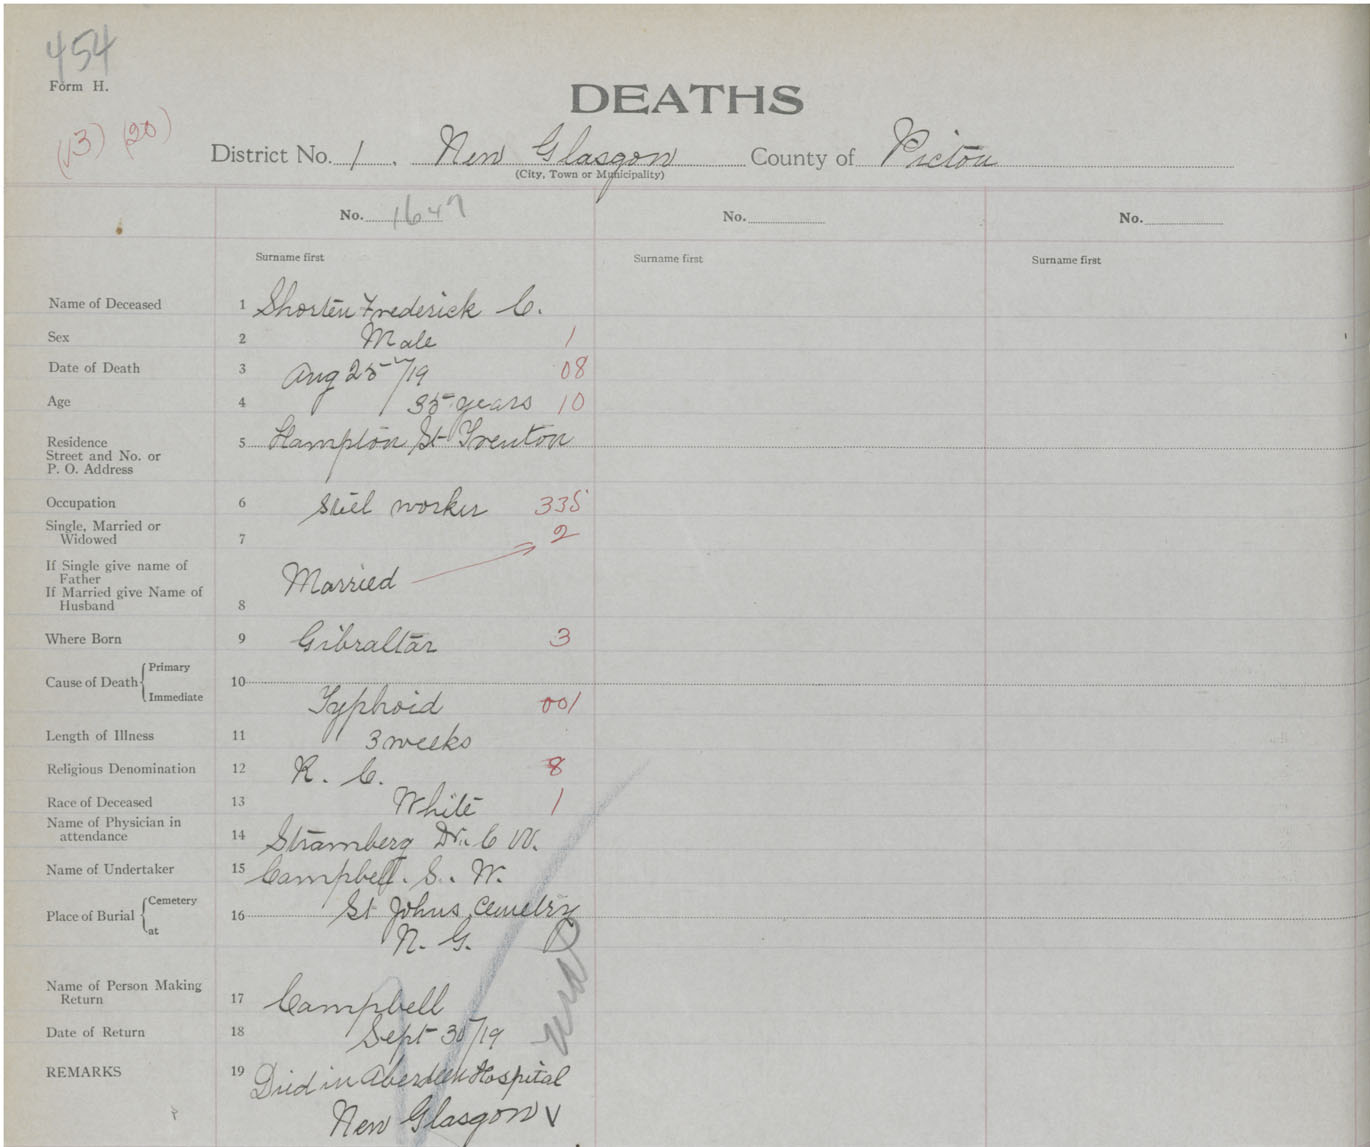 454
Form H.
DEATHS
(13) (20)
District No. 1. New Glasgow County of Pictou
(City, Town or Municipality)
No. 1647 No. No.
Surname first Surname first Surname first
Name of Deceased 1 Shorten Frederick C.
Sex 2 Male 1
Date of Death 3 Aug 25/19 08
Age 4 35 years 10
Residence
Street and No. or
P. O. Address 5 Hampton St Trenton
Occupation 6 Steel worker 335
Single, Married or
Widowed 7 2
If Single give name of
Father
If Married give Name of
Husband 8 Married
Where Born 9 Gibraltar 3
Cause of Death Primary
Immediate 10 Typhoid 001
Length of Illness 11 3 weeks
Religious Denomination 12 R. C. 8
Race of Deceased 13 White 1
Name of Physician in
attendance 14 Stramberg Dr. C W.
Name of Undertaker 15 Campbell. S. W.
Place of Burial Cemetery
at 16 St Johns Cemetry
N. G.
Name of Person Making
Return 17 Campbell
Date of Return 18 Sept 30/19
REMARKS 19 Died in Aberdeen Hospital
New Glasgow